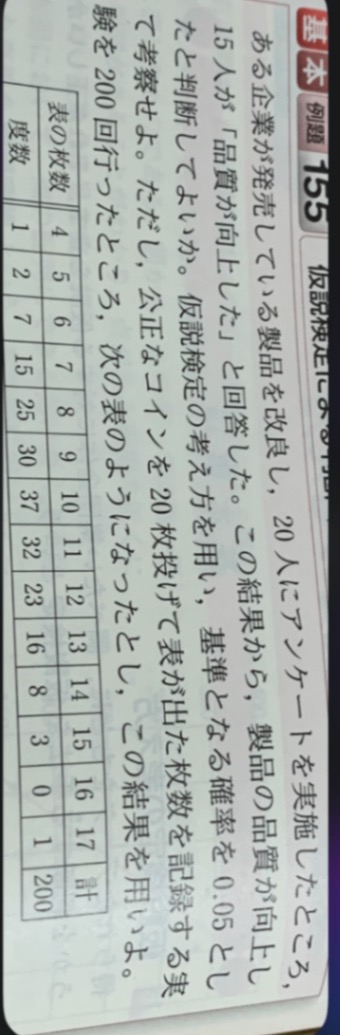 基本 例題 155 仮説検定による判断
ある企業が発売している製品を改良し，20人にアンケートを実施したところ，
15人が「品質が向上した」と回答した。この結果から，製品の品質が向上し
たと判断してよいか。仮説検定の考え方を用い，基準となる確率を0.05とし
て考察せよ。ただし，公正なコインを20枚投げて表が出た枚数を記録する実
験を200回行ったところ，次の表のようになったとし，この結果を用いよ。
表の枚数 4 5 6 7 8 9 10 11 12 13 14 15 16 17 計
度数 1 2 7 15 25 30 37 32 23 16 8 3 0 1 200